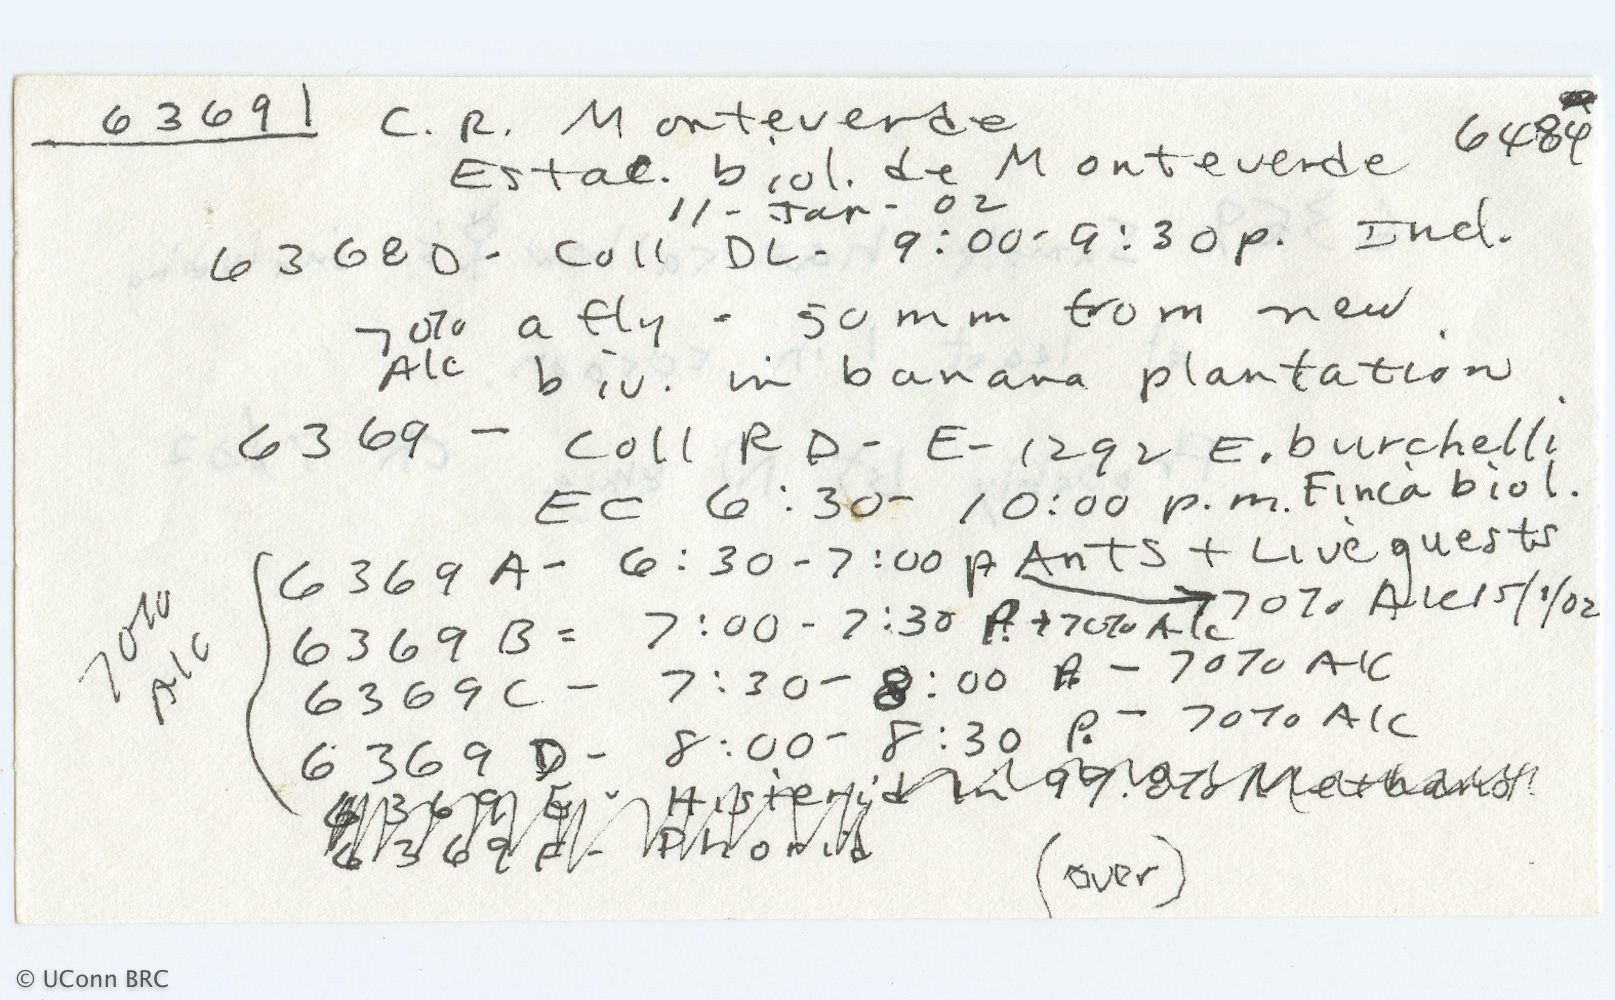 63691 C.R. Monteverde
6484
Estac. biol. de Monteverde
11-Jan-02
6368D- Coll DL- 9:00-9:30p. Incl.
70% Alc a fly - 50 mm from new
biv. in banana plantation
6369 - Coll RD- E-1292 E. burchelli
EC 6:30- 10:00 p.m. Finca biol.
70% Alc
6369 A- 6:30-7:00 p Ants + Live guests
70% Alc 15/1/02
6369 B= 7:00-7:30 P. + 70% Alc
6369 C - 7:30-8:00 P - 70% Alc
6369 D- 8:00-8:30 P. - 70% Alc
6369 E- Histerid in 99.8% Methanol
6369 F- Phorid
(over)
© UConn BRC